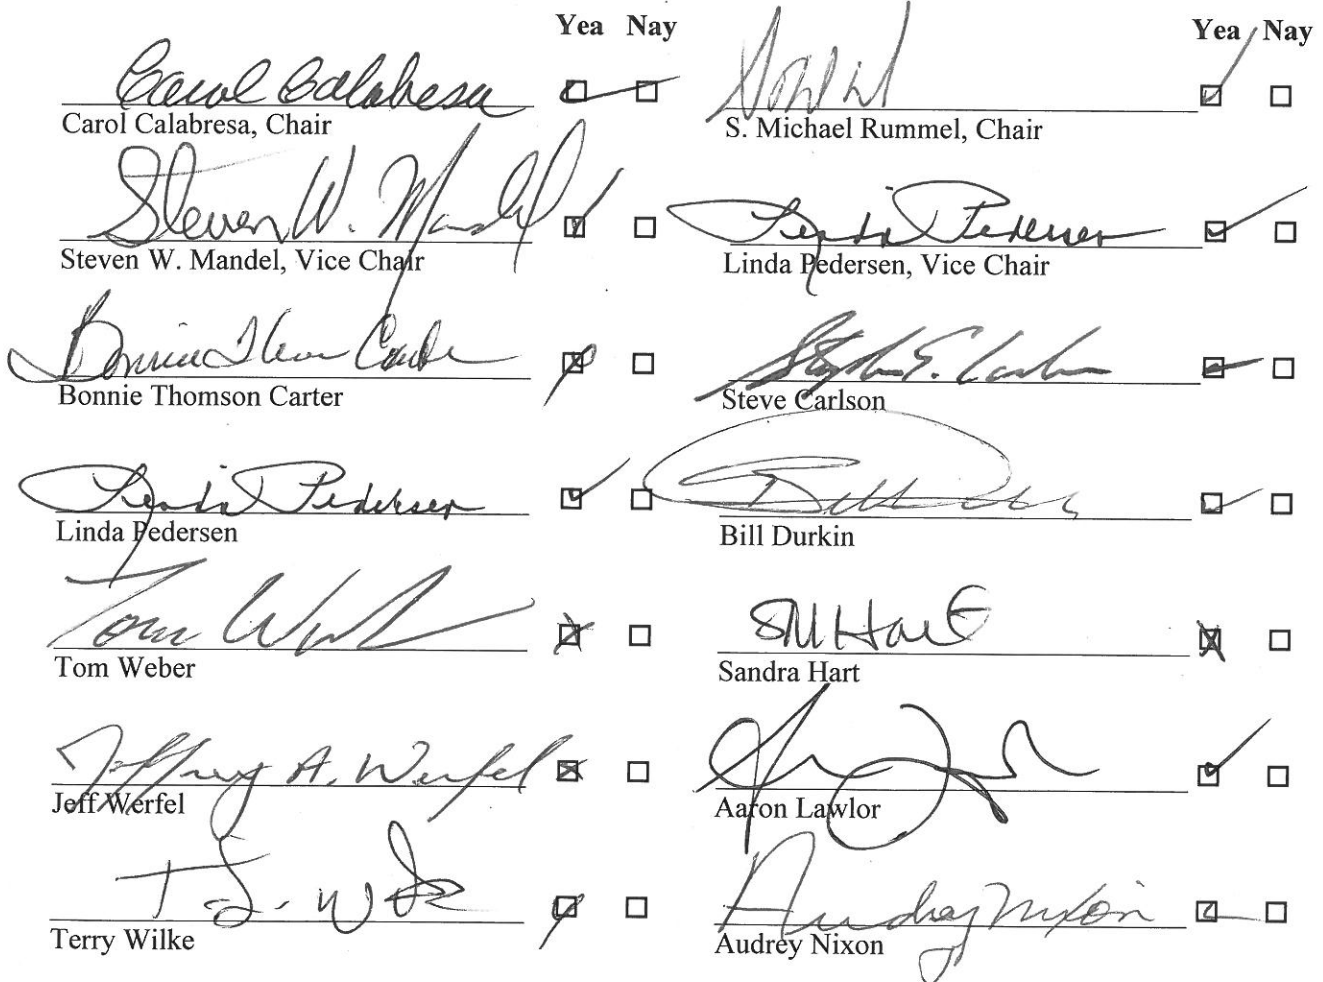 Yea Nay
Carol Calabresa
Carol Calabresa, Chair
Steven W. Mandel
Steven W. Mandel, Vice Chair
Bonnie Thomson Carter
Bonnie Thomson Carter
Linda Pedersen
Linda Pedersen
Tom Weber
Tom Weber
Jeffrey A. Werfel
Jeff Werfel
Terry Wilke
Yea Nay
S. Michael Rummel, Chair
Linda Pedersen
Linda Pedersen, Vice Chair
Stephen E. Carlson
Steve Carlson
Bill Durkin
SM Hart
Sandra Hart
Aaron Lawlor
Audrey Nixon
Audrey Nixon